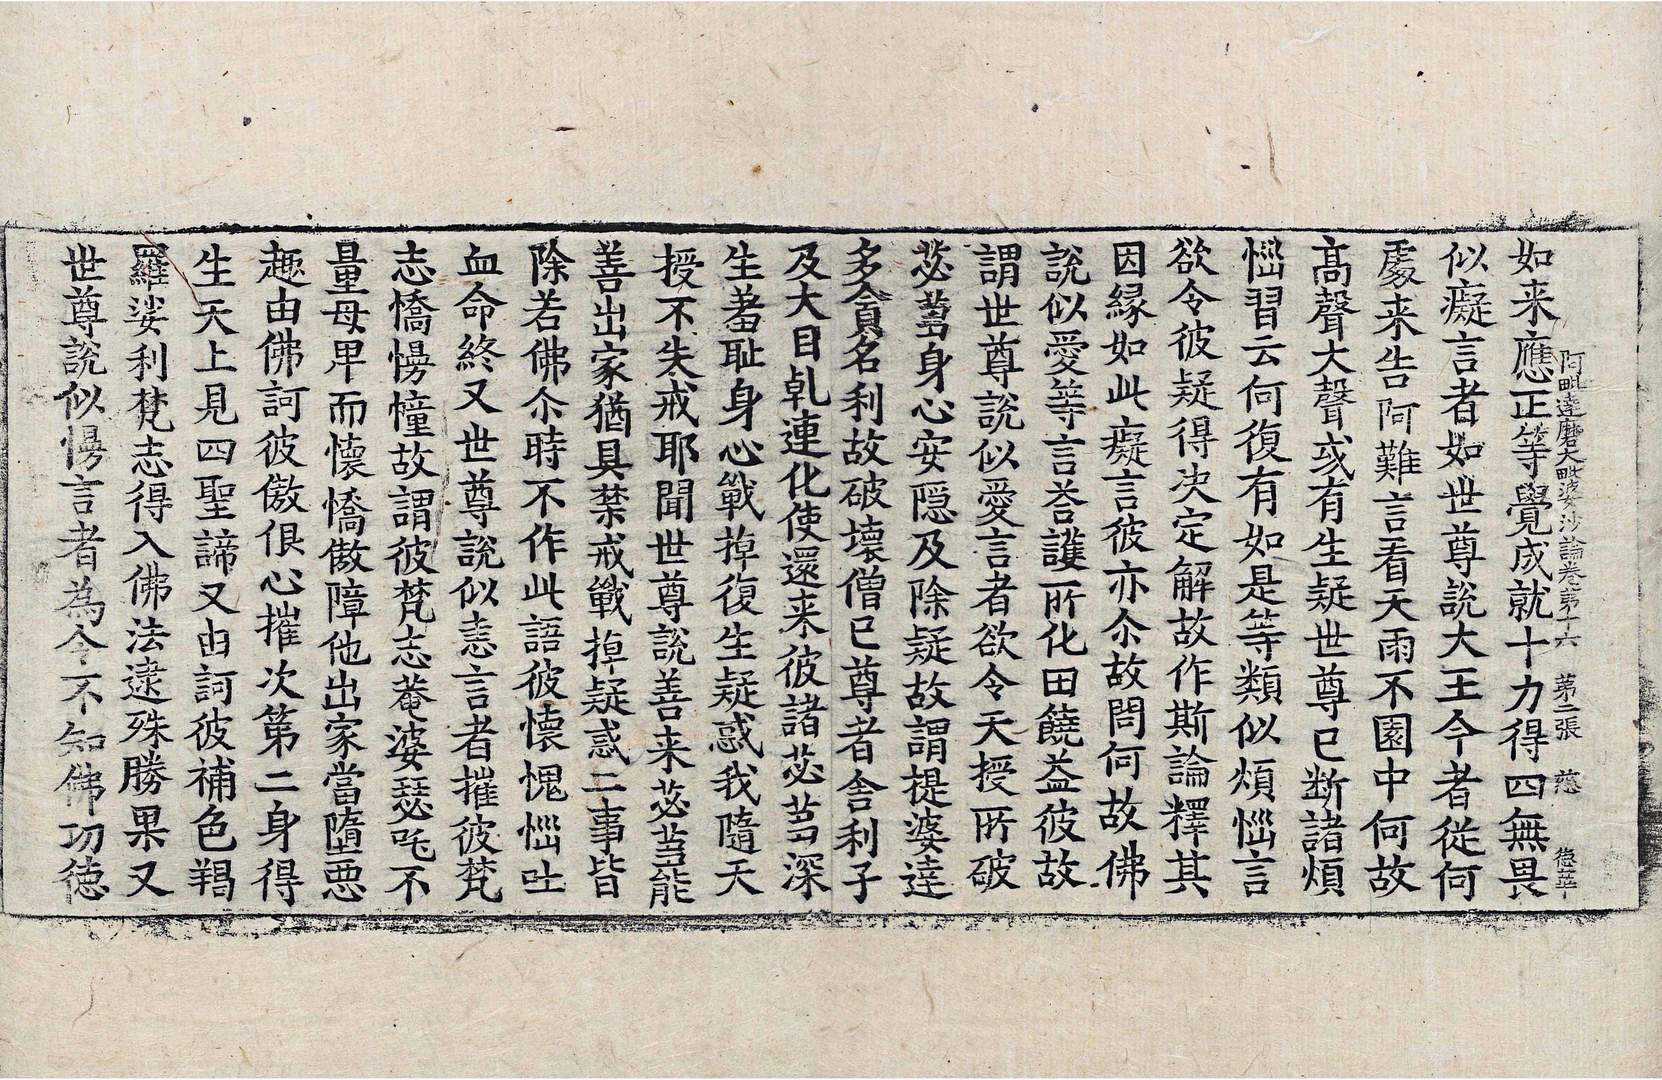 阿毗達磨大毗婆沙論卷苐十六 苐二張 慈 德華
如来應正等覺成就十力得四無畏
似癡言者如世尊說大王今者從何
處来告阿難言看天雨不園中何故
髙聲大聲或有生疑世尊已断諸煩
惱習云何復有如是等類似煩惱言
欲令彼疑得决定解故作斯論釋其
因縁如此癡言彼亦尒故問何故佛
說似愛等言荅護所化田饒益彼故
謂世尊說似愛言者欲令天授所破
苾蒭身心安隠及除疑故謂提婆達
多貪名利故破壞僧已尊者舎利子
及大目乹連化使還来彼諸苾蒭深
生羞耻身心戰掉復生疑惑我隨天
授不失戒耶聞世尊說善来苾蒭能
善出家猶具禁戒戰掉疑惑二事皆
除若佛尒時不作此語彼懐愧惱吐
血命終又世尊說似恚言者摧彼梵
志憍慢幢故謂彼梵志菴婆瑟吒不
量母卑而懐憍傲障他出家當墮悪
趣由佛訶彼傲恨心摧次第二身得
生天上見四聖諦又由訶彼補色羯
羅娑利梵志得入佛法逮殊勝果又
世尊說似慢言者為令不知佛功徳